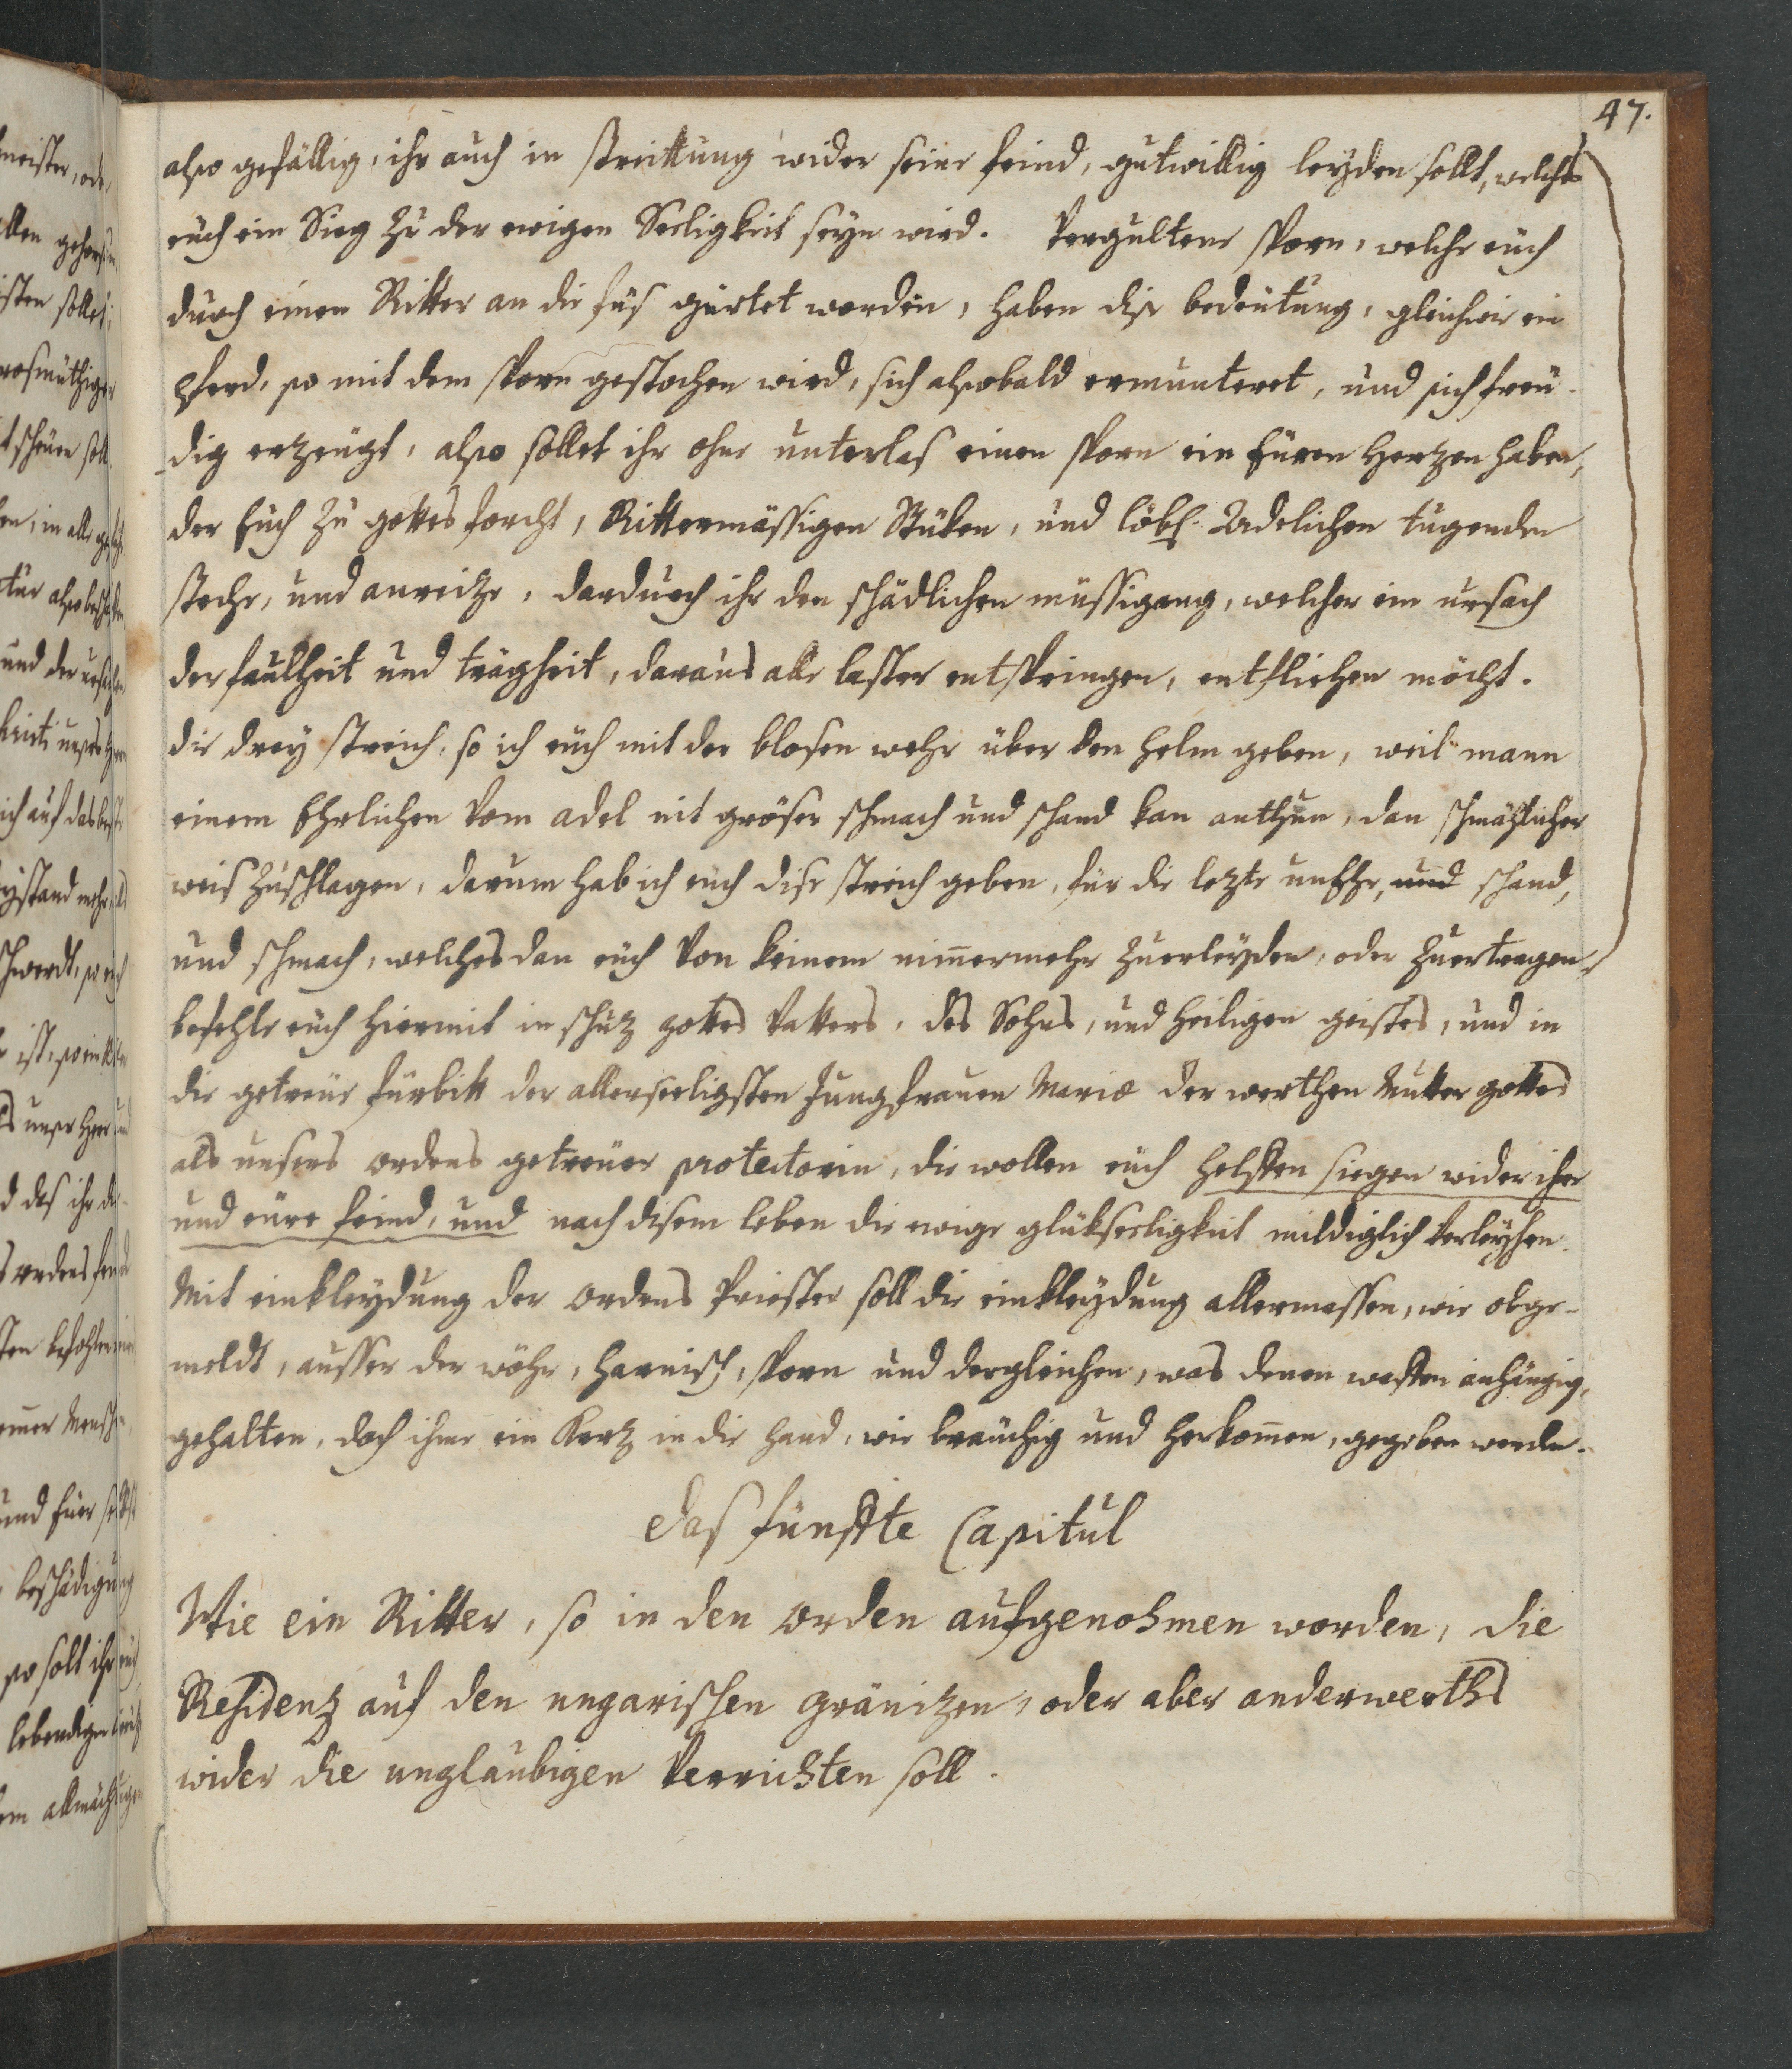 47.
also gefällig, ihr auch in streittung wider seine feind, gutwillig leyden sollt, welches
eüch ein Sieg zu der ewigen Seeligkeit seyn wird. Vergultene sporn, welche eüch
durch einen Ritter an die füs gürtet worden, haben dise bedeütung, gleichwie ein
Pferd, so mit dem sporn gestochen wird, sich alsobald ermunteret, und sich freü-
dig erzeügt, also sollet ihr ohne unterlas einen sporn in Eüren Hertzen haben,
der Eüch zu gottes forcht, Rittermässigen Stüken, und löbl: Adelichen tugenden
steche, und anreitze, dardurch ihr den schädlichen müssigang, welcher ein ursach
der faulheit und trägheit, daraus alle laster entspringen, entfliehen möcht.
die drey streich, so ich eüch mit der blosen wehr über den helm geben, weil mann
einem Ehrlichen vom adel nit gröser schmach und schand kan anthun, dan schmählicher
weis zuschlagen, darum hab ich eüch dise streich geben, für die lezte unEhr, und schand,
und schmach, welches dan eüch von keinem nimmermehr zuerleyden, oder zuertragen,
befehle eüch hiermit in schuz gottes Vatters, des Sohns, und heiligen geistes, und in
die getreüe fürbitt der allerseeligsten Jungfrauen Mariæ der werthen Mutter gottes
als unsers ordens getreüer protectorin, die wollen eüch helffen siegen wider ihre
und eüre feind, und nach disem leben die ewige glükseeligkeit mildiglich verleyhen.
Mit einkleydung der ordens Priester soll die einkleydung allermassen, wie obge-
meldt, ausser der wöhr, harnisch, sporn und dergleichen, was denen waffen anhängig,
gehalten, doch ihme ein Kertz in die hand, wie breüchig und herkommen, gegeben werden.
das fünffte Capitul
Wie ein Ritter, so in den orden aufgenohmen worden, die
Residenz auf den ungarischen gränitzen, oder aber anderwerths
wider die unglaubigen verrichten soll.